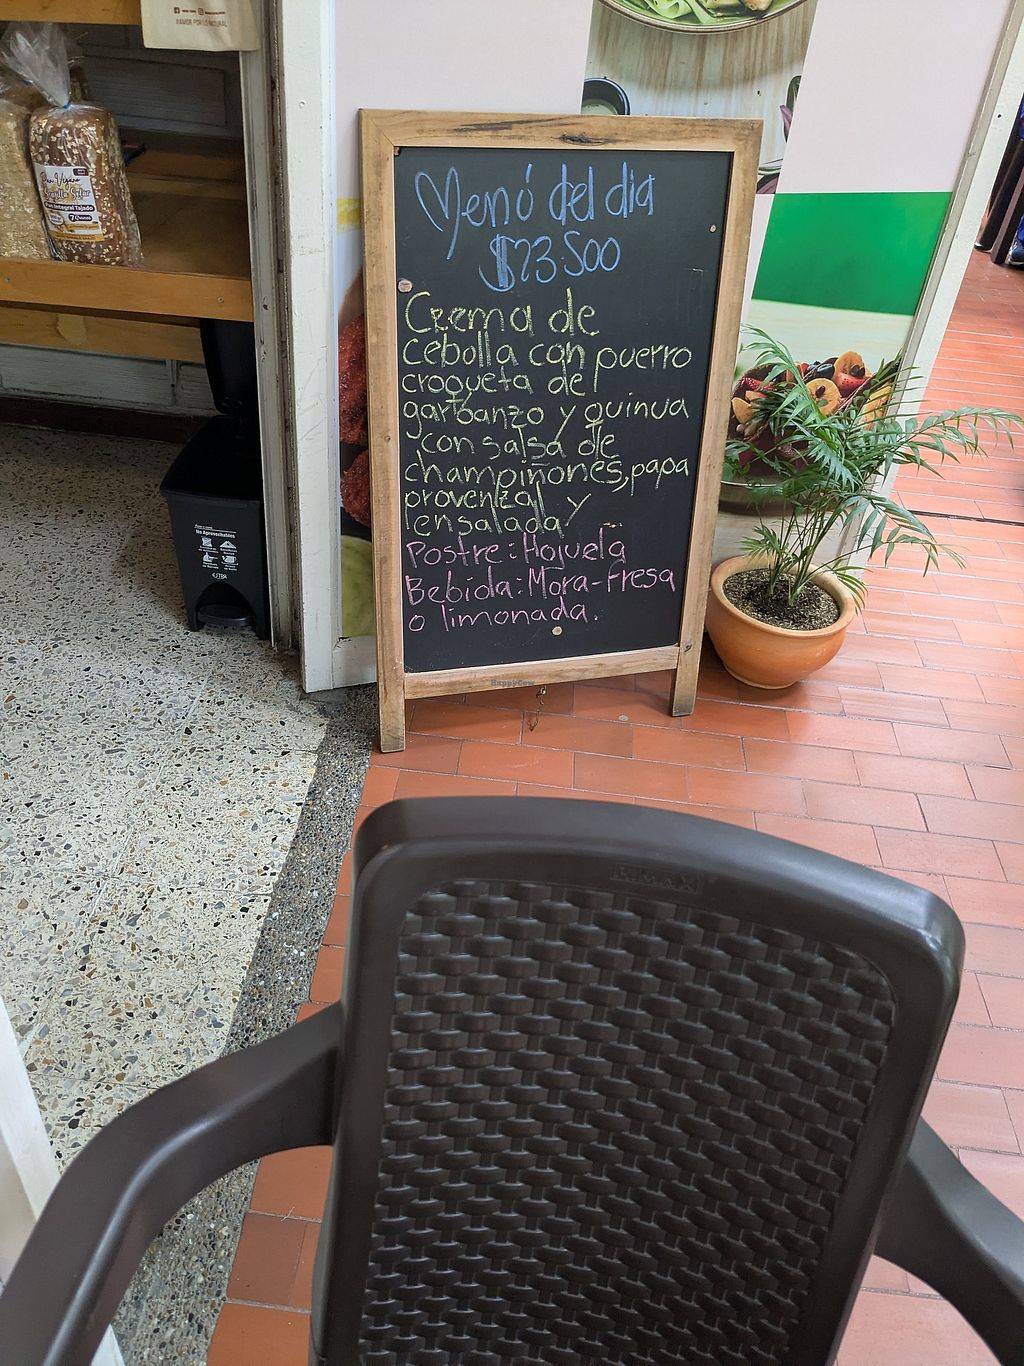 #AMOR POR LO NATURAL
Pan Vegano
Semilla Solar
Pan Integral Tajado
7 Granos
Menú del dia
$23.500
Crema de
cebolla con puerro
croqueta de
garbanzo y quinua
con salsa de
champiñones, papa
provenzal y
ensalada
Postre: Hojuela
Bebida: Mora-Fresa
o limonada.
No Aprovechables
ESTRA
HappyCow
RIMAX